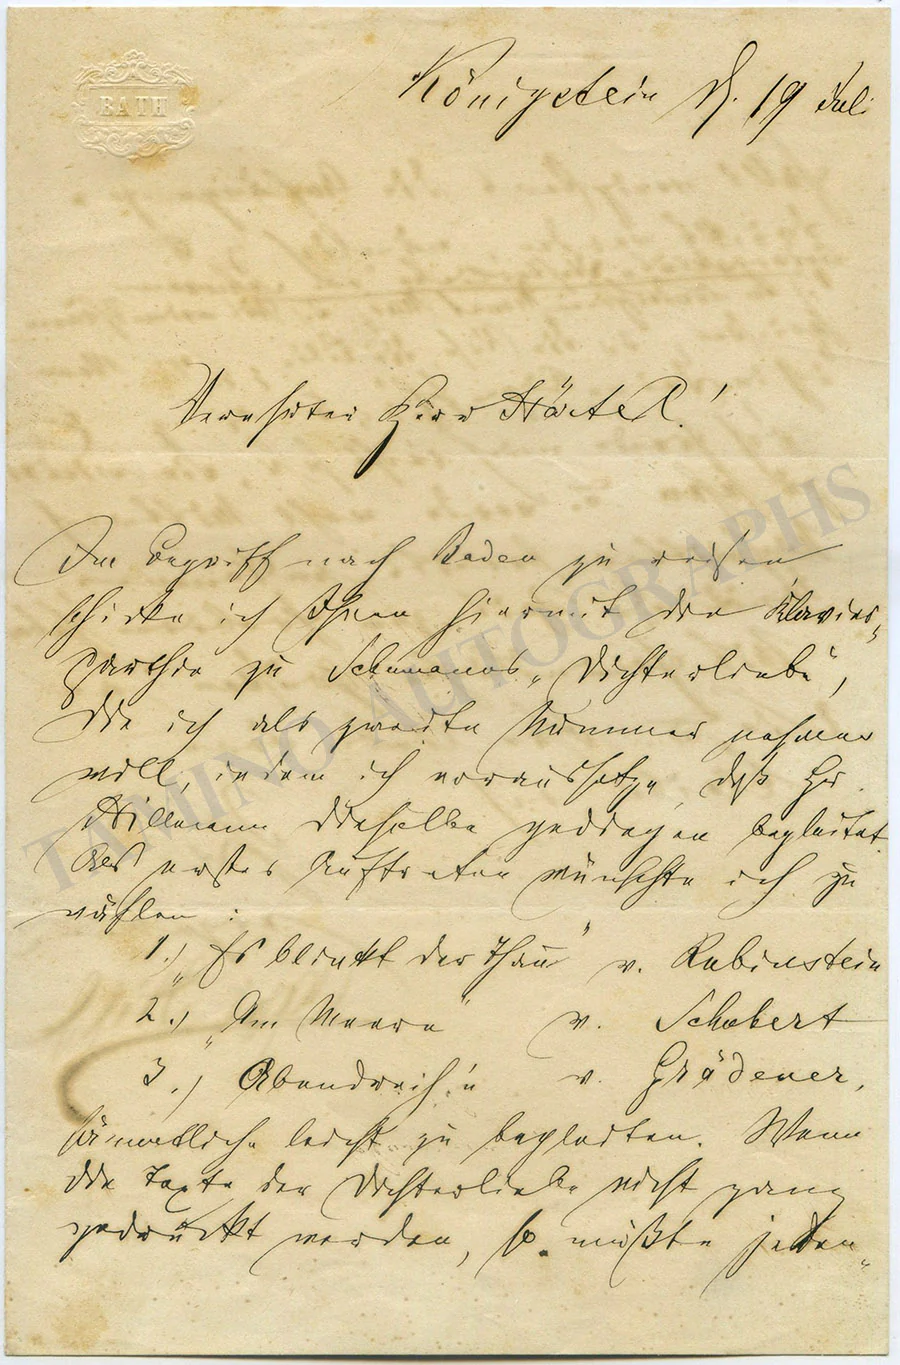 BATH
Königstein d. 19 Juli
Verehrter Herr Härtel!
Im Begriff nach Baden zu reisen
schicke ich Ihnen hiermit die Klavier„
Parthie zu Schumanns „Dichterliebe“,
die ich als zweite Nummer nehmen
will, indem ich voraussetze, daß Hr.
Hillmann dieselbe gediegen begleitet.
Als erstes Auftreten wünschte ich zu
wählen:
1.) „Es blinkt der Thau“ v. Rubinstein
2.) „Am Meere“ v. Schubert
3.) Abendreih'n v. Grädener,
sämmtliche leicht zu begleiten. Wenn
die Texte der Dichterliebe nicht ganz
gedruckt werden, so müßte jeden„
TAMINO AUTOGRAPHS